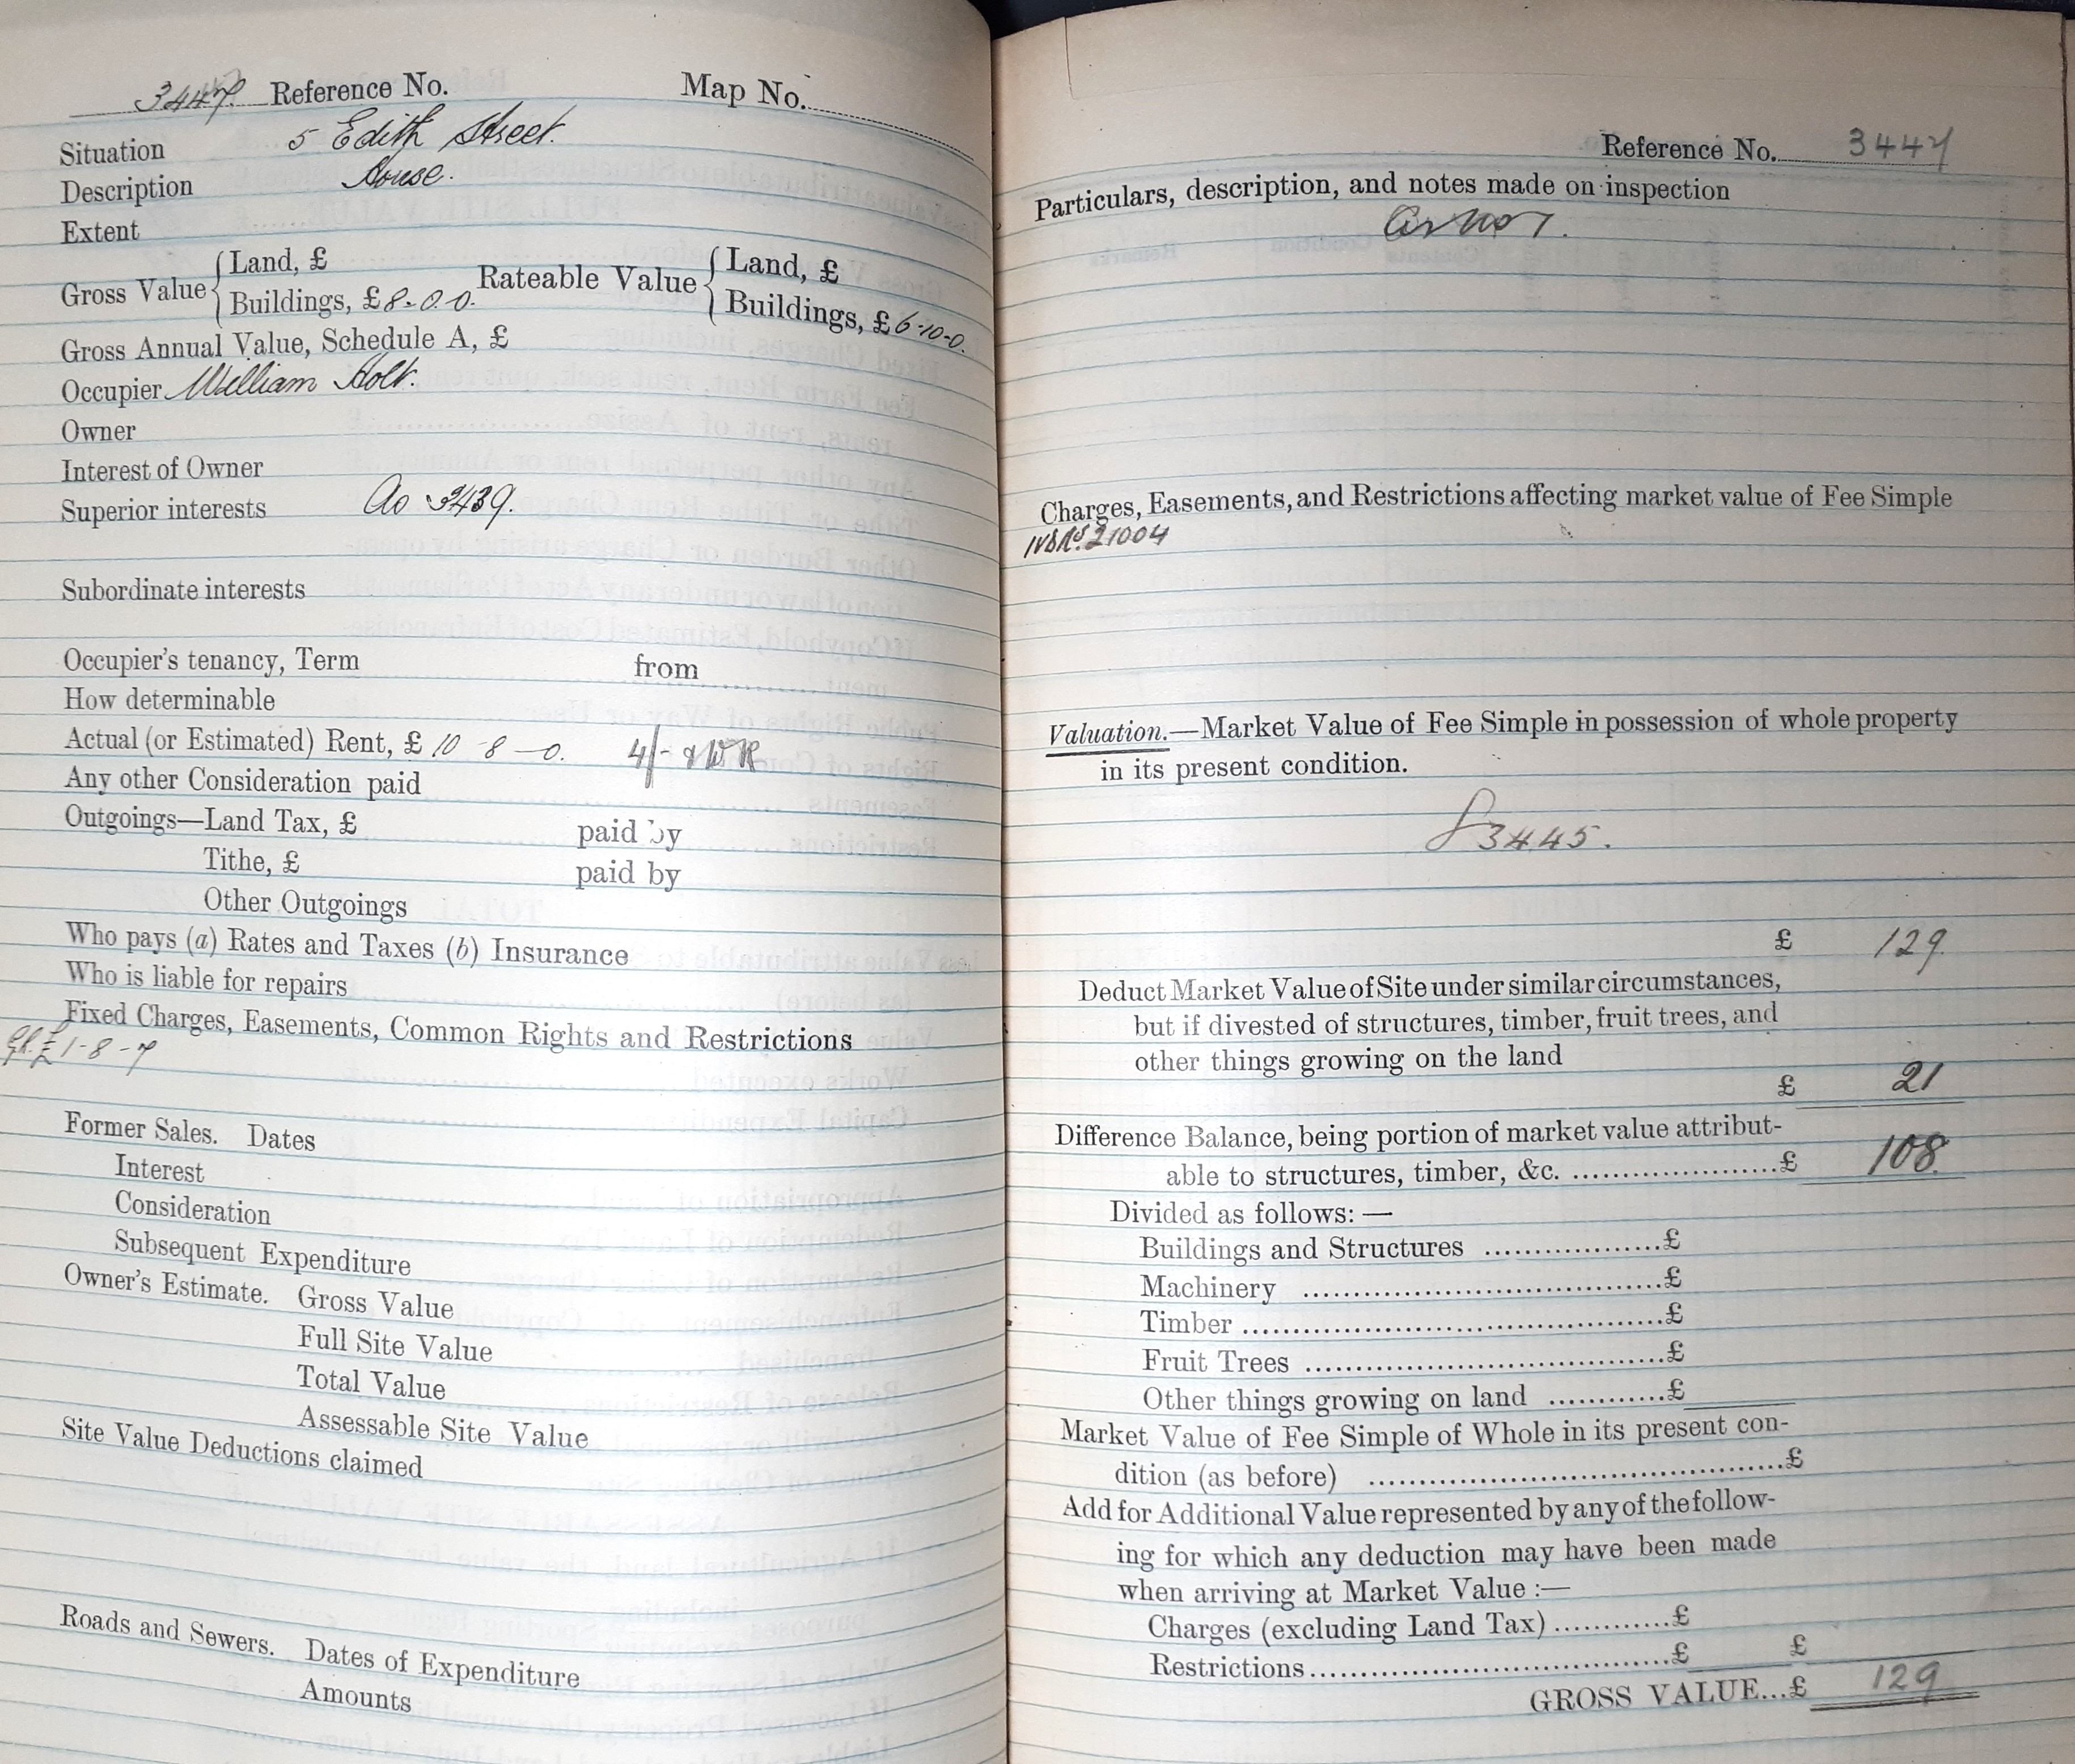 3447. Reference No. Map No.
Situation 5 Edith Street.
Description House.
Extent
Gross Value { Land, £ Rateable Value { Land, £
Buildings, £ 8-0-0. Buildings, £ 6-10-0.
Gross Annual Value, Schedule A, £
Occupier William Holt.
Owner
Interest of Owner
Superior interests As 3439.
Subordinate interests
Occupier's tenancy, Term from
How determinable
Actual (or Estimated) Rent, £ 10-8-0. 4/-
Any other Consideration paid
Outgoings—Land Tax, £ paid by
Tithe, £ paid by
Other Outgoings
Who pays (a) Rates and Taxes (b) Insurance
Who is liable for repairs
Fixed Charges, Easements, Common Rights and Restrictions
£1-8-7
Former Sales. Dates
Interest
Consideration
Subsequent Expenditure
Owner's Estimate. Gross Value
Full Site Value
Total Value
Assessable Site Value
Site Value Deductions claimed
Roads and Sewers. Dates of Expenditure
Amounts
Reference No. 3447
Particulars, description, and notes made on inspection
As No 1.
Charges, Easements, and Restrictions affecting market value of Fee Simple
21004
Valuation.—Market Value of Fee Simple in possession of whole property
in its present condition.
3445.
£ 129.
Deduct Market Value of Site under similar circumstances,
but if divested of structures, timber, fruit trees, and
other things growing on the land
£ 21
Difference Balance, being portion of market value attribut-
able to structures, timber, &c. ......................£ 108.
Divided as follows: —
Buildings and Structures ..................£
Machinery .....................................£
Timber ...........................................£
Fruit Trees .....................................£
Other things growing on land ............£
Market Value of Fee Simple of Whole in its present con-
dition (as before) ............................................£
Add for Additional Value represented by any of the follow-
ing for which any deduction may have been made
when arriving at Market Value :—
Charges (excluding Land Tax) ............£
Restrictions ......................................£ £
GROSS VALUE...£ 129